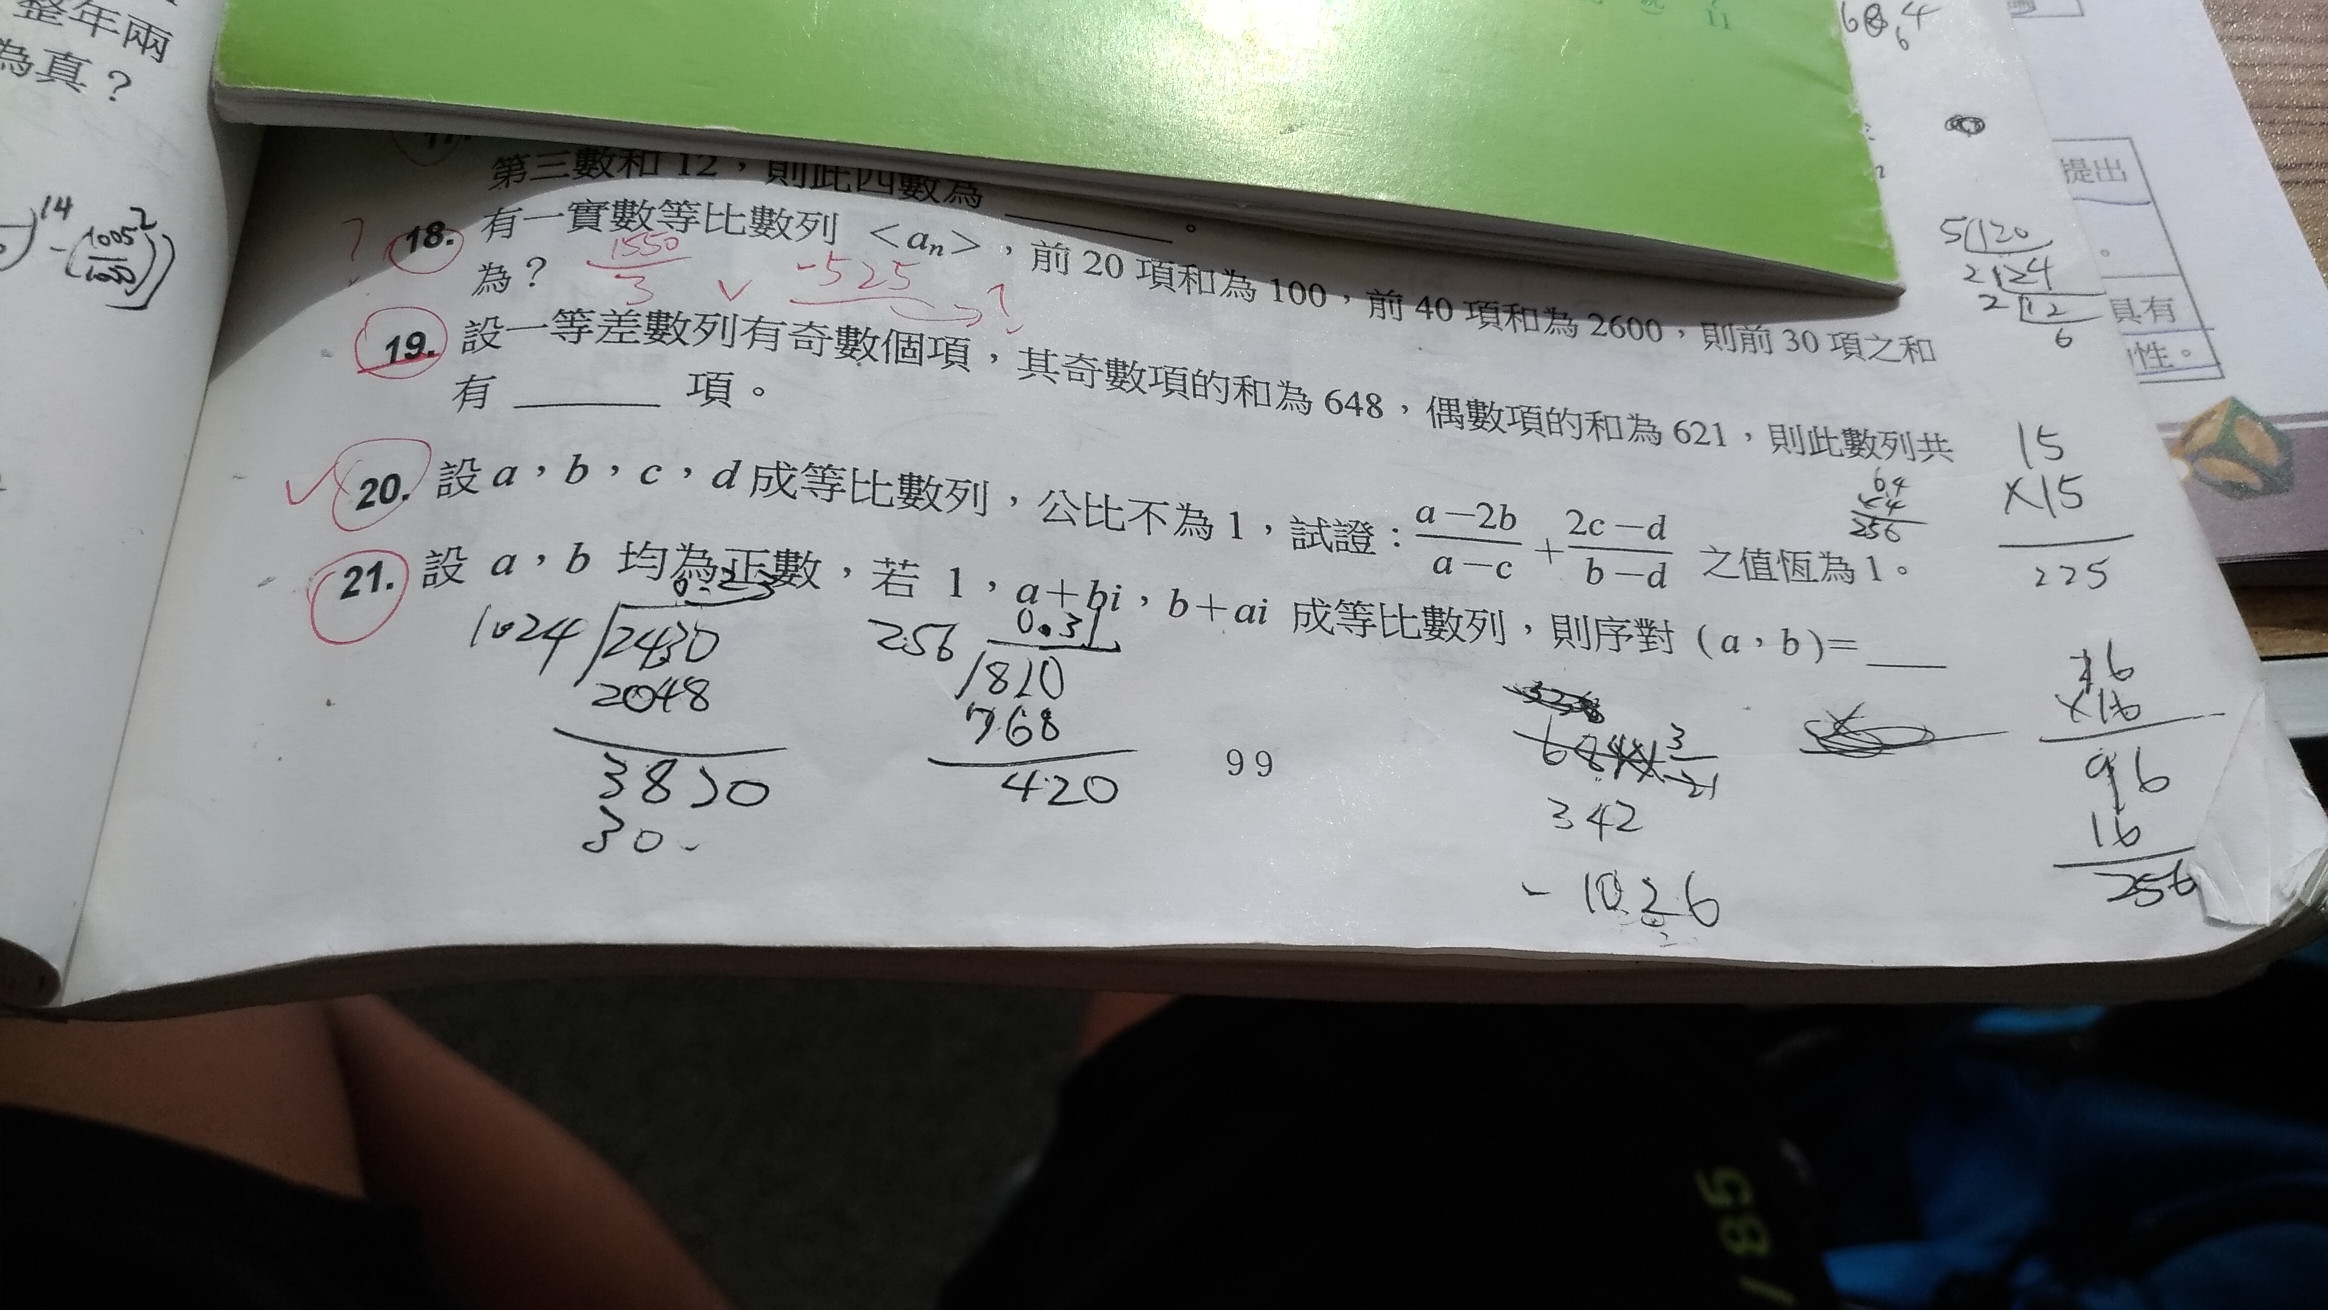 整年兩
為真？
第三數和 12，則此四數為 ＿＿＿。
18. 有一實數等比數列 <aₙ>，前 20 項和為 100，前 40 項和為 2600，則前 30 項之和
為？ 1550/3 ✓ -525 →?
19. 設一等差數列有奇數個項，其奇數項的和為 648，偶數項的和為 621，則此數列共
有 ＿＿＿ 項。
20. 設 a，b，c，d 成等比數列，公比不為 1，試證：(a－2b)/(a－c) + (2c－d)/(b－d) 之值恆為 1。
21. 設 a，b 均為正數，若 1，a＋bi，b＋ai 成等比數列，則序對 (a，b)=＿＿
0.23
1024 2430
2048
3820
30
0.31
256 810
768
420
99
342
-1026
5 120
2 24
2 12
6
64
×4
256
15
×15
225
16
×16
96
16
256
提出
具有
性。
85